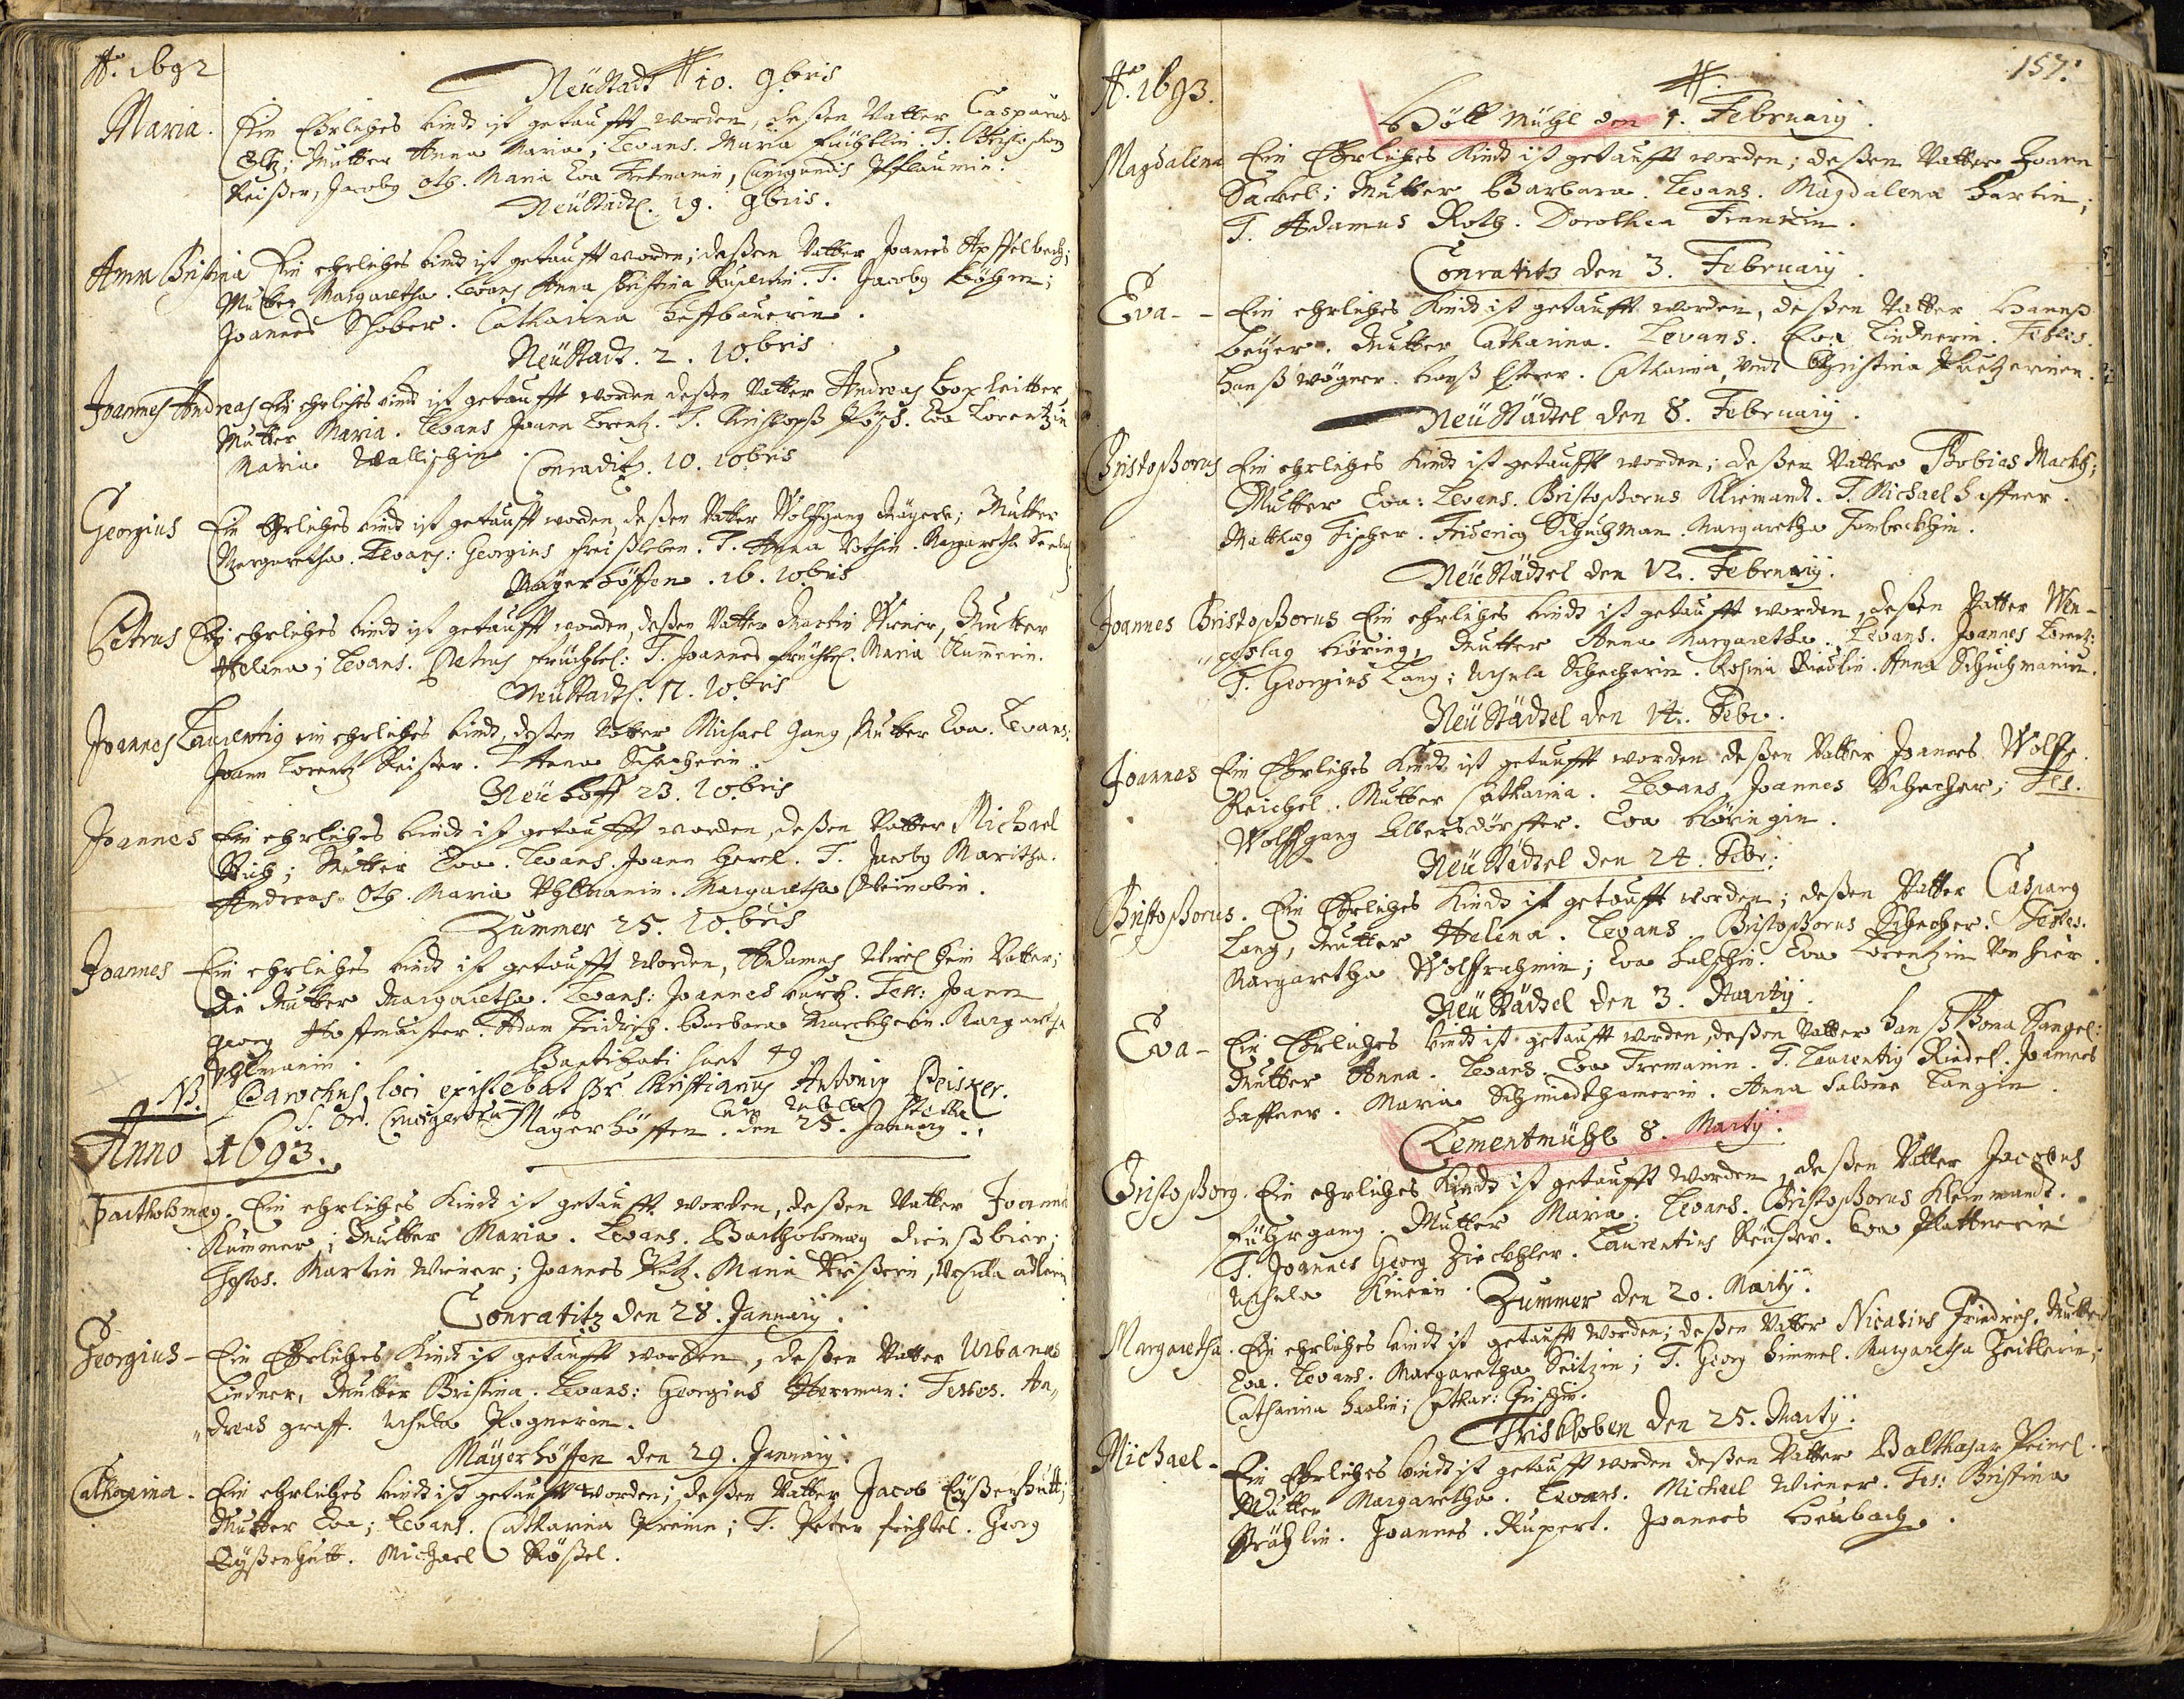 Ao. 1692
NeüStadt 10. 9bris
Maria. Ein Ehrliches kindt ist getaufft worden, deßen Vatter Casparus
Eltz; Mutter Anna Maria; Levans. Maria T.
Reißer, Jacobg Oth. Maria Eva Cunigundis Pflaumin.
NeüStadtl. 19. 9bris.
Anna Christina Ein ehrliches kindt ist getaufft worden; deßen Vatter Joannes Apffelbeckh;
Mutter Margaretha. Levans Anna Christina T. Jacobg Böhm;
Joannes Schober. Catharina
NeüStadt. 2. 10.bris
Joannes Andreas Ein ehrliches kindt ist getaufft worden deßen Vatter Andreas
Mutter Maria. Levans Joann Lorentz. T. Eva Lorentzin
Maria Wallischin
Conraditz. 10. 10bris
Georgius Ein Ehrliches kindt ist getaufft worden, deßen Vatter Wolffgang Mutter
Margaretha. Levans: Georgius T. Anna Margaretha
Mayerhöffen. 16. 10bris
Petrus Ein ehrliches kindt ist getaufft worden, deßen Vatter Martin Wiener, Mutter
Helena; Levans. Petrus früchtel: T. Joannes früchtel. Maria Kummerin.
NeüStadtl. 17. 10bris
Joannes Laurentig ein ehrliches kindt, deßen Vatter Michael Gang, Mutter Eva. Levans:
Joann Lorentz Reißer. T Anna Schecherin.
Neühoff 23. 10.bris
Joannes Ein ehrliches kindt ist getaufft worden, deßen Vatter Michael
Mutter Eva. Levans. Joann T. Jacobg
Andreas Oth. Maria Uhlmanin. Margaretha
Zummer 25. 10.bris
Joannes Ein ehrliches kindt ist getaufft worden, Adamus Vatter;
die Mutter Margaretha. Levans: Joannes Tess: Joann
Georg Hoffmeister. Adam Fridrich. Barbara Margaretha
Uhlmanin.
Baptizati sunt 49
NB. Parochus loci existebat Dr. Christianus Antonig
S. Or. Crucigerorum cum rubea stella
Anno 1693. Mayerhöffen. den 25. January.
Bartholomæg. Ein ehrliches Kindt ist getaufft worden, deßen Vatter Joannes
Kummer; Mutter Maria. Levans. Bartholomæg
Testes. Martin Wiener; Joannes Maria Ursula adlerin
Conratitz den 28. January.
Georgius - Ein Ehrliches Kindt ist getaufft worden, deßen Vatter Urbanus
Lindner, Mutter Christina. Levans: Georgius Herrman: Testes. An„
„dreas graff. Ursula Wagnerin.
Mäyerhöffen den 29. January.
Catharina. Ein ehrliches kindt ist getaufft worden; deßen Vatter Jacob Eyßenhutt;
Mutter Eva; Levans. Catharina T. Peter früchtel. Georg
Eyßenhutt. Michael Rößel.
157.
Ao. 1693.
Höll Mühl den 1. February.
Magdalena Ein Ehrliches Kindt ist getaufft worden; deßen Vatter Joann
Sackel; Mutter Barbara. Levans. Magdalena Hartin;
T. Adamus Roth. Dorothea
Conratitz den 3. February.
Eva - - Ein ehrliches Kindt ist getaufft worden, deßen Vatter Hannß
Beyer. Mutter Catharina. Levans. Eva Lindnerin. Testes.
Hanß wägner. Catharina, vndt Christina
NeüStädtel den 8. February.
Christophorus Ein ehrliches Kindt ist getaufft worden; deßen Vatter Thobias Mackh;
Mutter Eva: Levans. Christophorus Kliemandt. T. Michael Haffner.
Mathæg Fischer. Friderig Schuchman Margaretha
NeüStädtel den 12. February.
Joannes Christophorus Ein ehrliches kindt ist getaufft worden, deßen Vatter Wen-
„ceslag Häring, Mutter Anna Margaretha. Levans. Joannes Lorentz:
T. Georgius Lang; Ursula Schecherin. Rosina Riedlin. Anna Schuchmanin.
NeüStädtel den 14. Febr.
Joannes Ein Ehrliches Kindt ist getaufft worden deßen Vatter Joannes Wolffg.
Reichel. Mutter Catharina. Levans, Joannes Schecher; Tes.
Wolffgang Albersdörffer. Eva Häringin.
NeüStädtel den 24. Febr:
Christophorus. Ein Ehrliches Kindt ist getaufft worden; deßen Vatter Casparg
Lang, Mutter Helena. Levans. Christophorus Schecher. Testes.
Margaretha Wolffrahmin; Eva Eva Lorentzin von hier.
NeüStädtel den 3. Marty.
Eva - Ein Ehrliches kindt ist getaufft worden, deßen Vatter Hanß Thoma Stangel:
Mutter Anna. Levans. Eva T. Laurentig Riedel. Joannes
Haffner. Maria Schmidthamerin. Anna Salome Langin.
Zementmühl 8. Marty.
Christophorg. Ein ehrliches Kindt ist getaufft worden, deßen Vatter Jacobus
Führgang. Mutter Maria. Levans. Christophorus Kleinmandt.
T. Joannes Georg Laurentius Reußer. Eva Platterin
Ursula
Zummer den 20. Marty.
Margaretha. Ein ehrliches kindt ist getaufft worden; deßen Vatter Nicasius Friedrich. Mutter
Eva. Levans. Margaretha Seitzin; T. Georg Himmel. Margaretha Zeitlerin;
Catharina Cathar:
Trißkloben den 25. Marty.
Michael - Ein Ehrliches kindt ist getaufft worden deßen Vatter Balthasar
Mutter Margaretha. Levans. Michael Wiener. Tes: Christina
Joannes Rupert. Joannes Heubach.